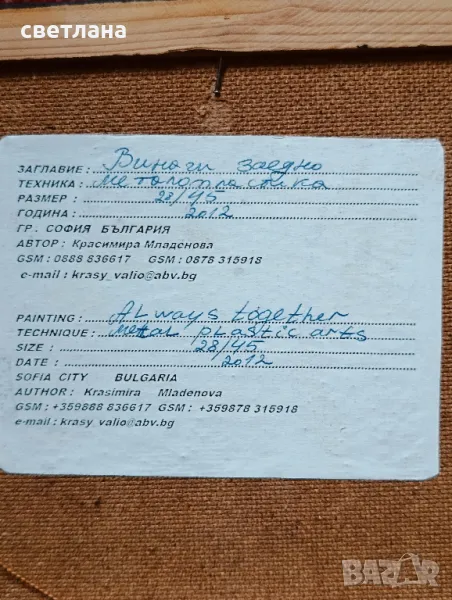 светлана
ЗАГЛАВИЕ : Винаги заедно
ТЕХНИКА : металопластика
РАЗМЕР : 28/45
ГОДИНА : 2012
ГР. СОФИЯ БЪЛГАРИЯ
АВТОР : Красимира Младенова
GSM : 0888 836617 GSM : 0878 315918
e-mail : krasy_valio@abv.bg
PAINTING : ALways together
TECHNIQUE : Metal plastic arts
SIZE : 28/45
DATE : 2012
SOFIA CITY BULGARIA
AUTHOR : Krasimira Mladenova
GSM : +359888 836617 GSM : +359878 315918
e-mail : krasy_valio@abv.bg
BAZAR